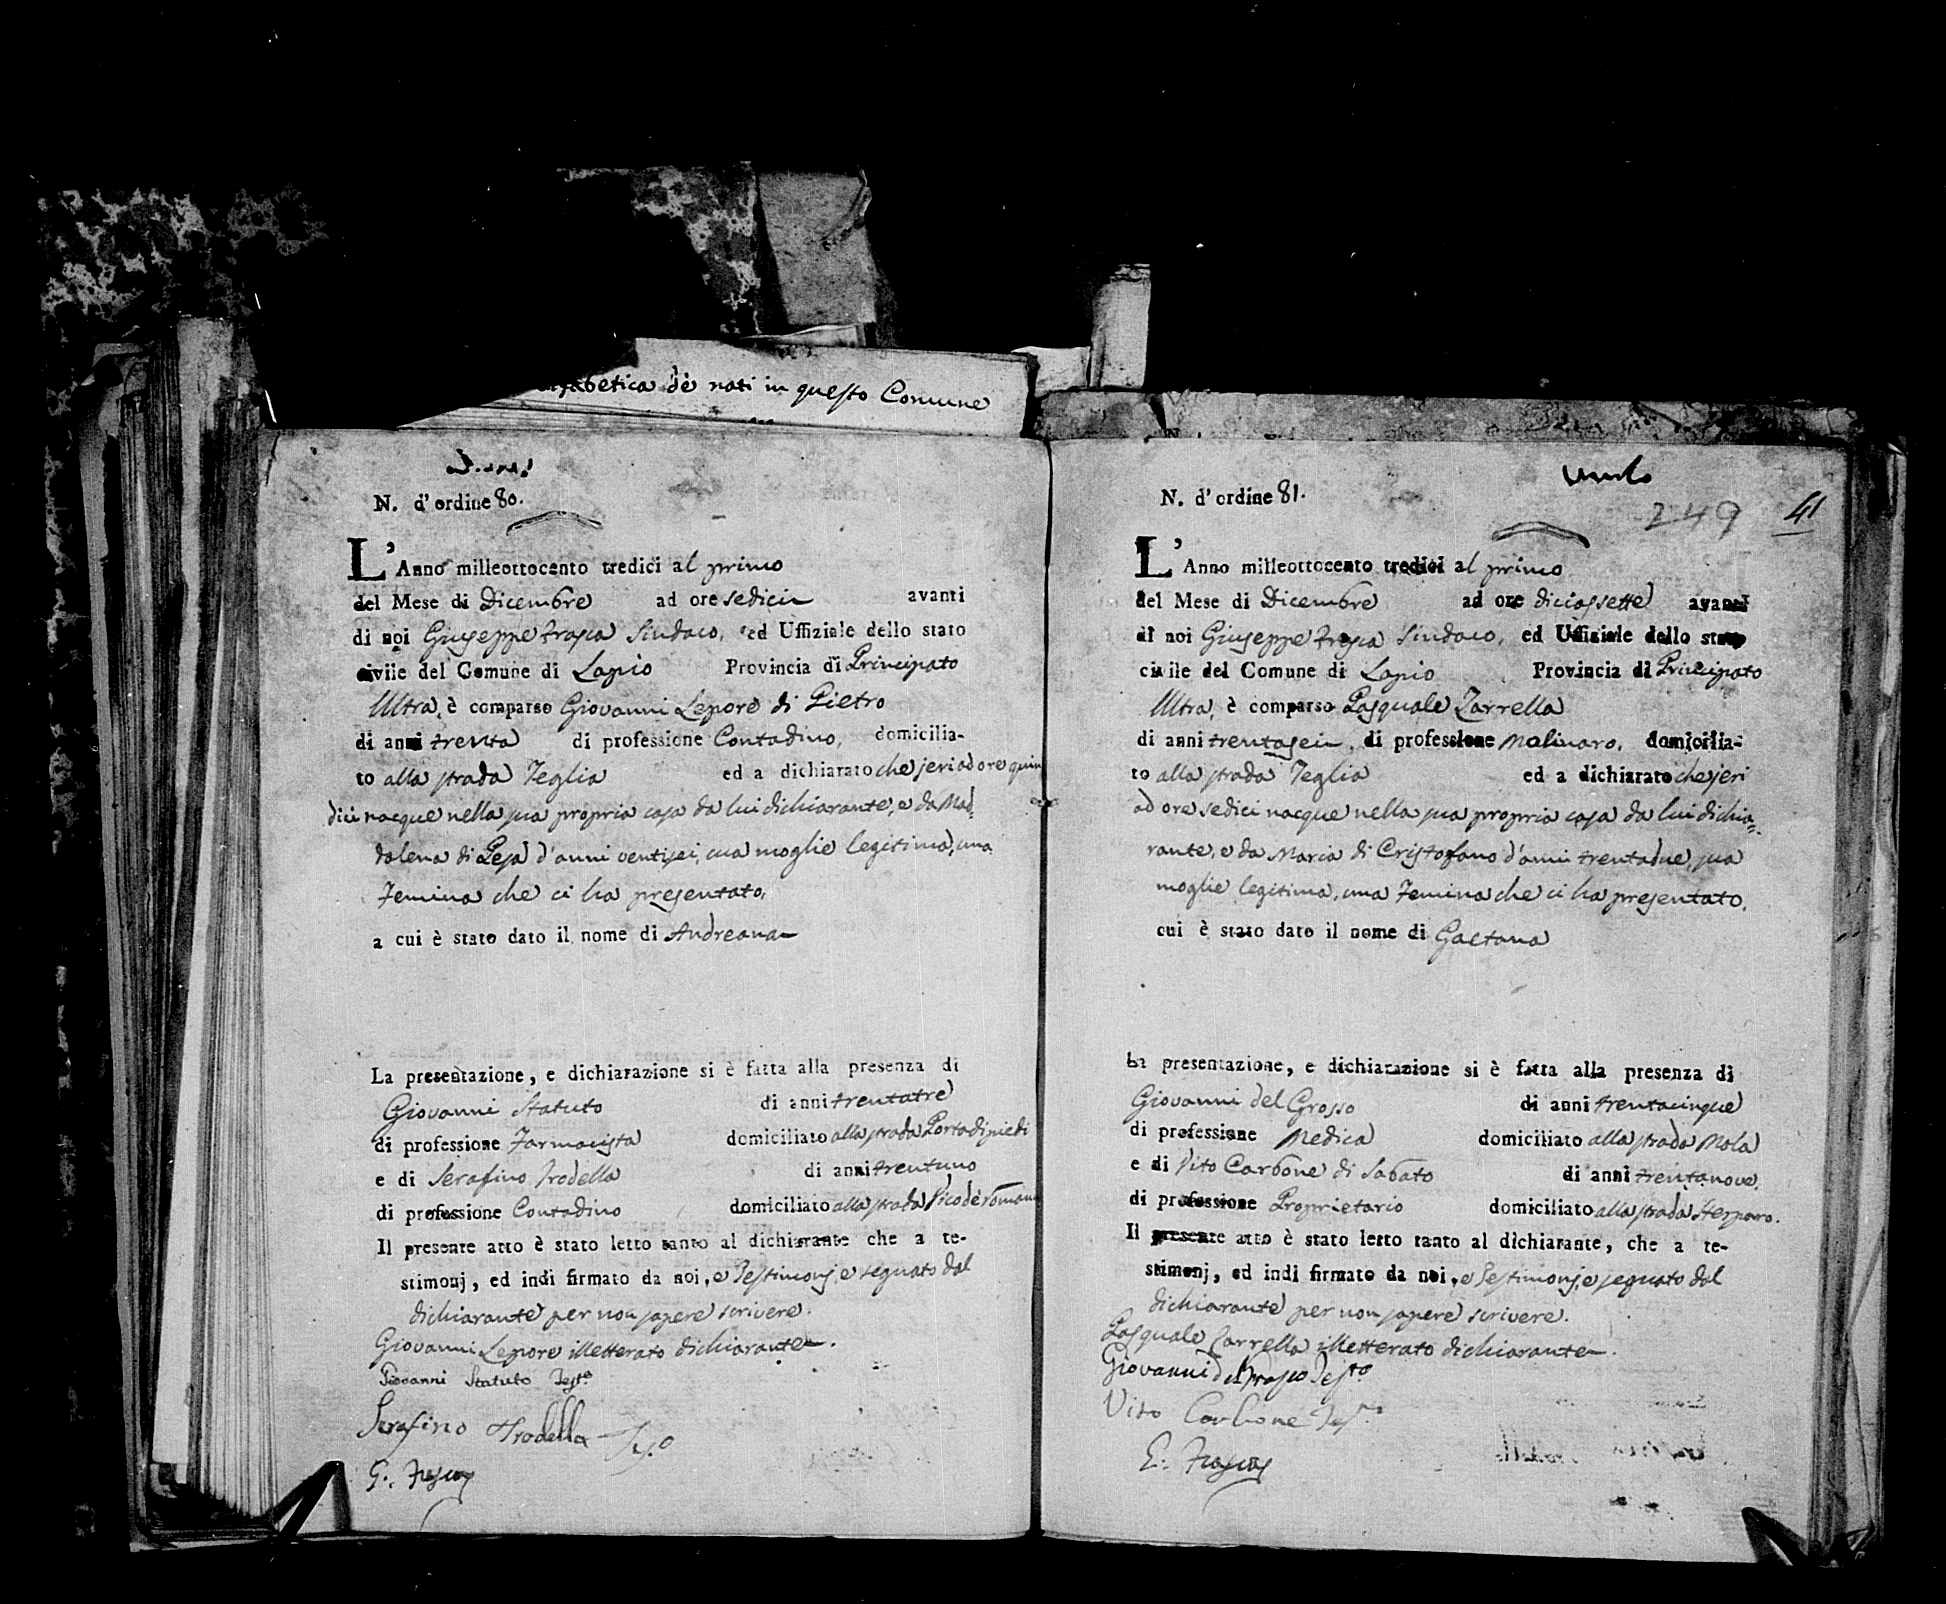 alfabetica de nati in questo Comune
N. d' ordine 80.
L' Anno milleottocento tredici al primo
del Mese di Dicembre ad ore sedici avanti
di noi Giuseppe Frasca Sindaco, ed Uffiziale dello stato
civile del Comune di Lapio Provincia di Principato
Ultra, è comparso Giovanni Lepore di Pietro
di anni trenta di professione Contadino, domicilia-
to alla strada Teglia ed a dichiarato che jeri ad ore quin
dici nacque nella sua propria casa da lui dichiarante, e da Mad=
dalena di Pesa d'anni ventisei, sua moglie legitima, una
Femina che ci ha presentato,
a cui è stato dato il nome di Andreana
La presentazione, e dichiarazione si è fatta alla presenza di
Giovanni Statuto di anni trentatre
di professione Farmacista domiciliato alla strada Porta di piedi
e di Serafino Trodella di anni trentuno
di professione Contadino domiciliato alla strada Vico de romani
Il presente atto è stato letto tanto al dichiarante che a te-
stimonj, ed indi firmato da noi, e Testimonj, e segnato dal
dichiarante per non sapere scrivere.
Giovanni Lepore illetterato dichiarante.
Giovanni Statuto Testo
Serafino Trodella
G. Frasca
N. d' ordine 81.
249 41
L' Anno milleottocento tredici al primo
del Mese di Dicembre ad ore diciassette avanti
di noi Giuseppe Frasca Sindaco, ed Uffiziale dello stato
civile del Comune di Lapio Provincia di Principato
Ultra, è comparso Pasquale Zarrella
di anni trentasei, di professione Molinaro, domicilia-
to alla strada Teglia ed a dichiarato che jeri
ad ore sedici nacque nella sua propria casa da lui dichia=
rante, e da Maria di Cristofano d'anni trentadue, sua
moglie legitima, una Femina che ci ha presentato,
cui è stato dato il nome di Gaetana
La presentazione, e dichiarazione si è fatta alla presenza di
Giovanni del Grosso di anni trentacinque
di professione Medica domiciliato alla strada Mola
e di Vito Carbone di Sabato di anni trentanove.
di professione Proprietario domiciliato alla strada Sterparo.
Il presente atto è stato letto tanto al dichiarante, che a te-
stimonj, ed indi firmato da noi, e Testimonj, e segnato dal
dichiarante per non sapere scrivere.
Pasquale Zarrella illetterato dichiarante.
Giovanni del Grosso Testo
Vito Carbone
G. Frasca